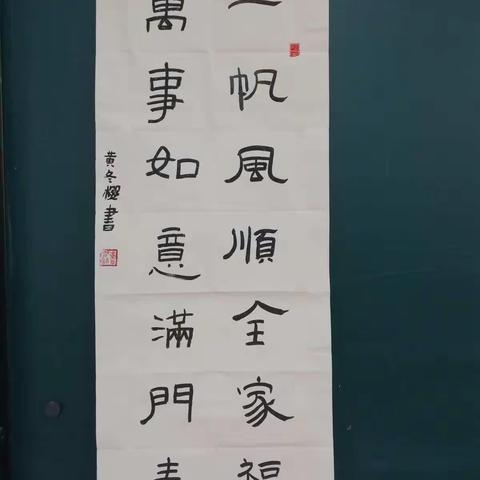 一帆風順全家福
萬事如意滿門
黄冬櫻書